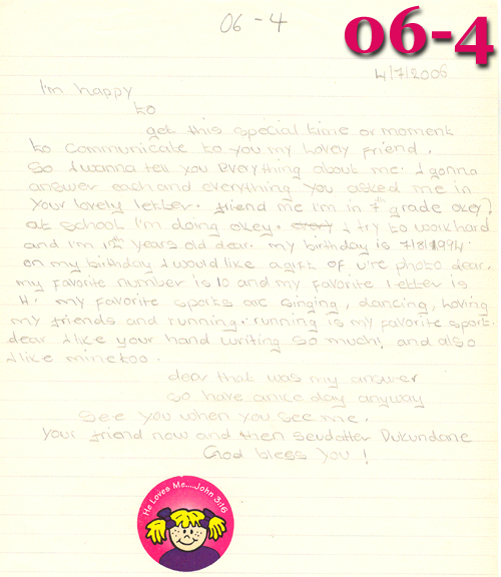 06-4
06-4
4/7/2006
I'm happy
to
get this special time or moment
to communicate to you my lovey friend.
So I wanna tell you everything about me. I gonna
answer each and everything you asked me in
your lovely letter. friend me I'm in 7th grade okey?
at school I'm doing okey. I try to work hard
and I'm years old dear. my birthday is 7/8/1994.
on my birthday I would like a gift of u're photo dear.
my favorite number is 10 and my favorite letter is
H. my favorite sports are singing, dancing, loving
my friends and running. running is my favorite sport.
dear I like your hand writing so much! and also
I like mine too.
dear that was my answer
so have a nice day anyway
See you when you see me.
your friend now and then Dukundane
God bless you!
He Loves Me....John 3:16